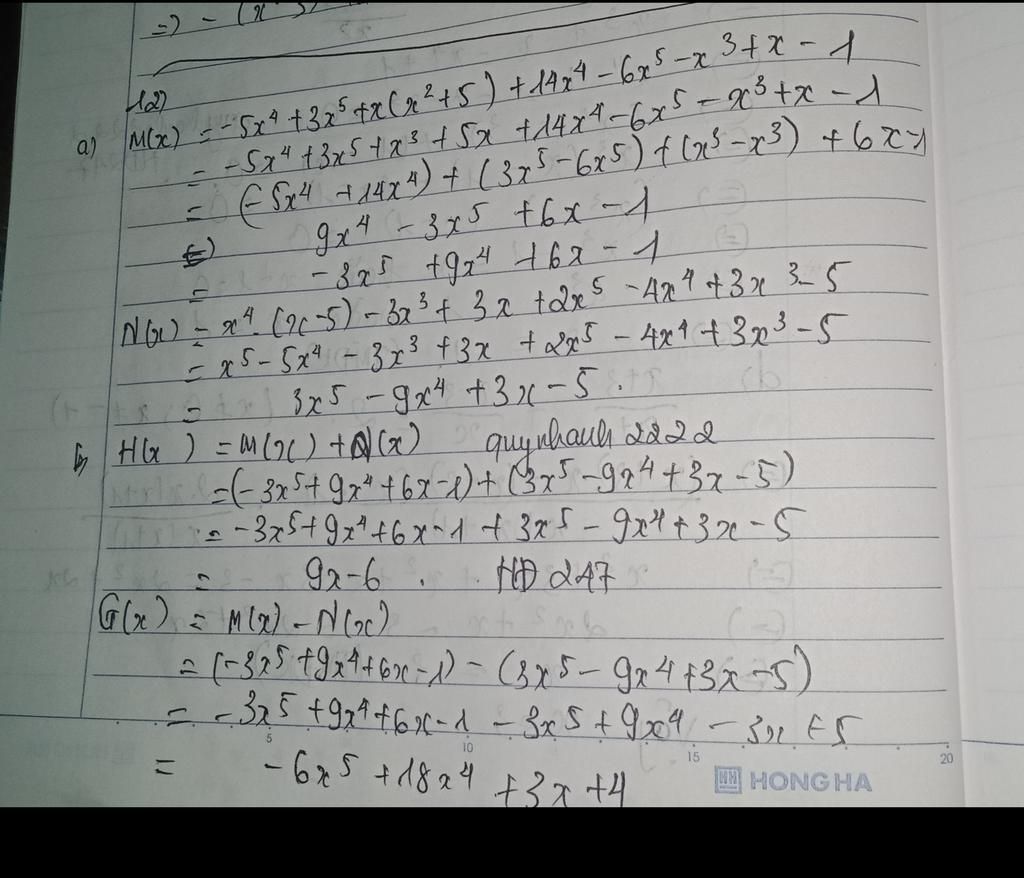 =) - (x - 3)
12)
a) M(x) = -5x⁴ + 3x⁵ + x(x² + 5) + 14x⁴ - 6x⁵ - x³ + x - 1
= -5x⁴ + 3x⁵ + x³ + 5x + 14x⁴ - 6x⁵ - x³ + x - 1
= (-5x⁴ + 14x⁴) + (3x⁵ - 6x⁵) + (x³ - x³) + 6x - 1
9x⁴ - 3x⁵ + 6x - 1
= -3x⁵ + 9x⁴ + 6x - 1
N(x) = x⁴. (x - 5) - 3x³ + 3x + 2x⁵ - 4x⁴ + 3x³ - 5
= x⁵ - 5x⁴ - 3x³ + 3x + 2x⁵ - 4x⁴ + 3x³ - 5
= 3x⁵ - 9x⁴ + 3x - 5.
b, H(x) = M(x) + N(x) quynhanh 2222
= (-3x⁵ + 9x⁴ + 6x - 1) + (3x⁵ - 9x⁴ + 3x - 5)
= -3x⁵ + 9x⁴ + 6x - 1 + 3x⁵ - 9x⁴ + 3x - 5
= 9x - 6 . . HĐ 247
G(x) = M(x) - N(x)
= (-3x⁵ + 9x⁴ + 6x - 1) - (3x⁵ - 9x⁴ + 3x - 5)
= -3x⁵ + 9x⁴ + 6x - 1 - 3x⁵ + 9x⁴ - 3x + 5
5 10 15 20
= -6x⁵ + 18x⁴ + 3x + 4
HH HONG HA